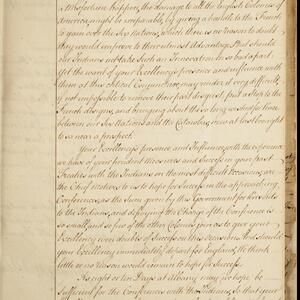 a Misfortune happen, the damage to all the English Colonies of
America, might be irreparable, by giving a handle to the French
to gain over the Six Nations, which there is no reason to doubt
they would improve to their utmost Advantage. But should
our Indians not take such an Innovation in so bad a part
yet the want of your Excellency's presence and influence with
them at this critical Conjuncture, may render it very difficult,
if not impossible to remove their past disgust, put a stop to the
French designs, and bringing about the so long wished for Union
between our Six Nations and the Catawbas, now at last brought
to so near a prospect.
Your Excellency's presence and Influence, with the experience
we have of your prudent Measures and Success in your past
Treaties with the Indians on the most difficult Occasions, are
the Chief motives to us to hope for Success on the approaching
Conference, as the Sum given by this Government for presents
to the Indians, and defraying the Charge of the Conference is
so small, and so few of the other Colonies join as to give your
Excellency even doubts of Success on this occasion. And should
your Excellency immediately depart for England, We think
little or no Reason would remain to hope for Success.
As eight or ten Days at Albany may be hope be
sufficient for the Conferences with the Indians, so that your